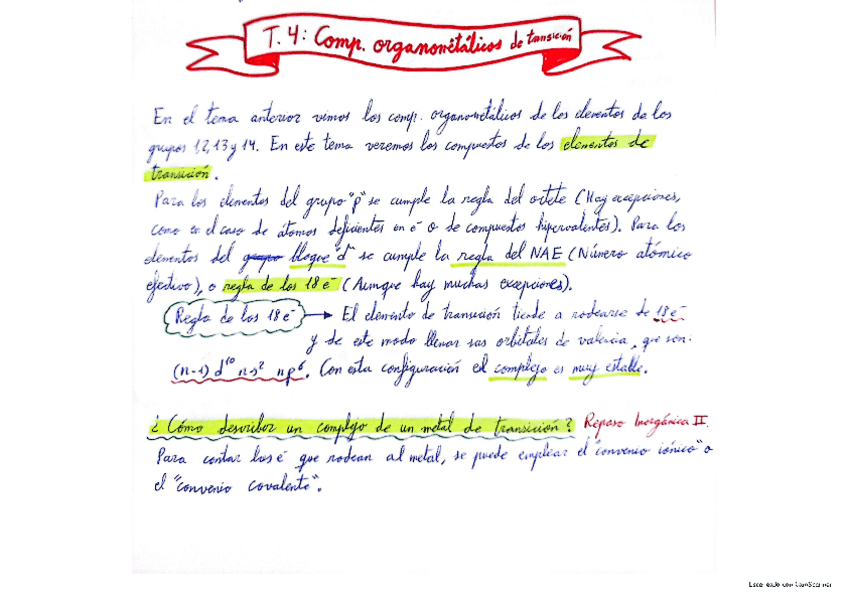 T. 4: Comp. organometálicos de transición
En el tema anterior vimos los comp. organometálicos de los elementos de los
grupos 12, 13 y 14. En este tema veremos los compuestos de los elementos de
transición.
Para los elementos del grupo "p" se cumple la regla del octete (Hay excepciones,
como en el caso de átomos deficientes en e⁻ o de compuestos hipervalentes). Para los
elementos del grupo bloque "d" se cumple la regla del NAE (Número atómico
efectivo), o regla de los 18 e⁻ (Aunque hay muchas excepciones).
Regla de los 18 e⁻ → El elemento de transición tiende a rodearse de 18 e⁻
y de este modo llenar sus orbitales de valencia, que son:
(n-1) d¹⁰ ns² np⁶. Con esta configuración el complejo es muy estable.
¿Cómo describir un complejo de un metal de transición? Repaso Inorgánica II.
Para contar los e⁻ que rodean al metal, se puede emplear el "convenio iónico" o
el "convenio covalente".
Escaneado con CamScanner